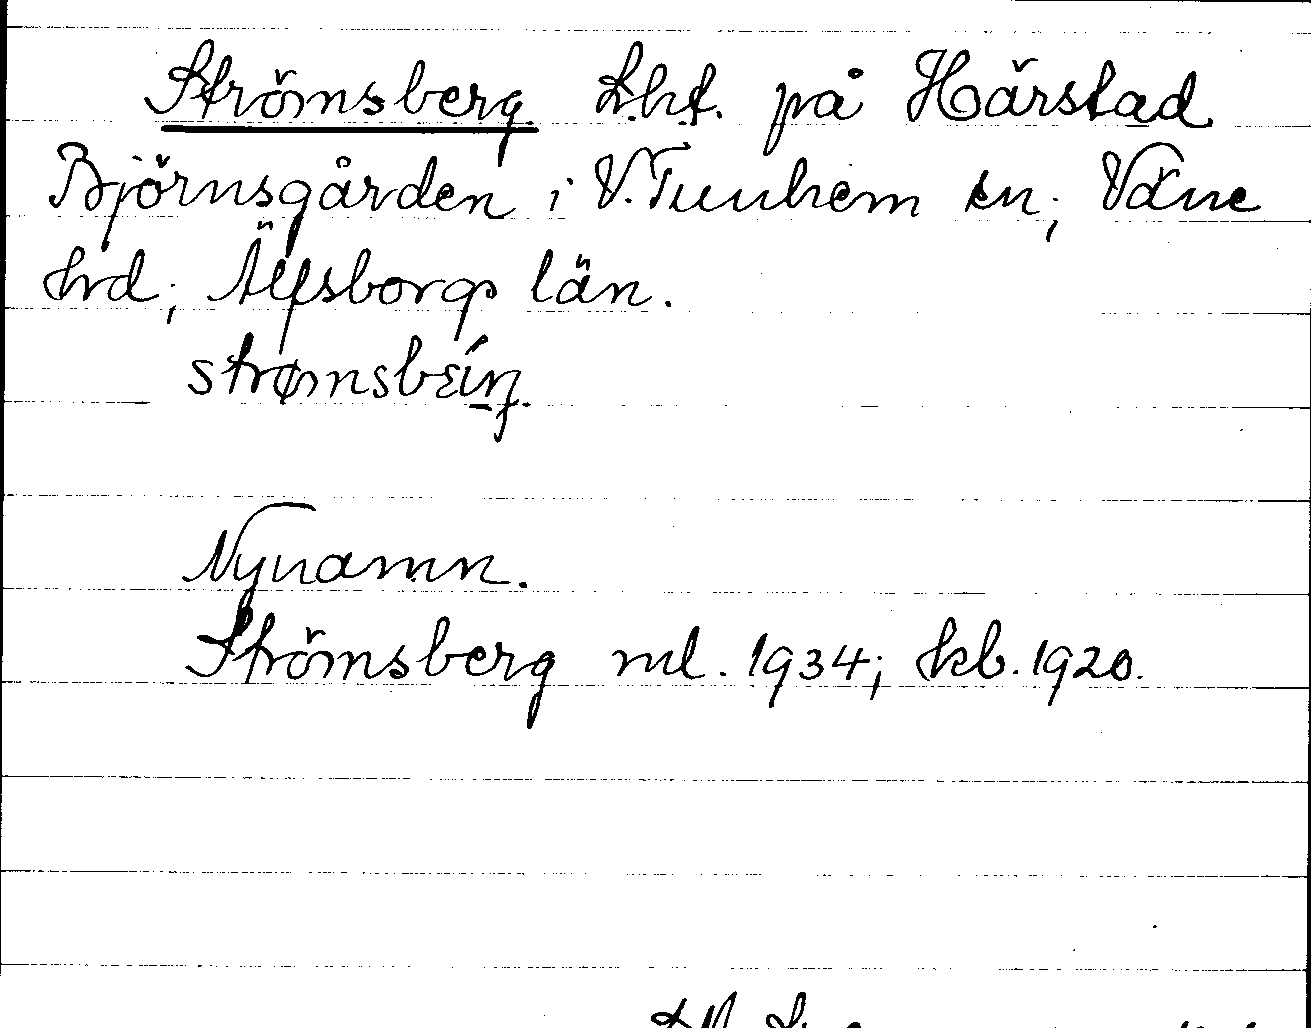 Strömsberg L.ht. på Hårstad
Björnsgården i V. Tunhem sn; Väne
hrd; Älfsborgs län.
strømsbɛ́rj.
Nynamn.
Strömsberg ml. 1934; kb. 1920.